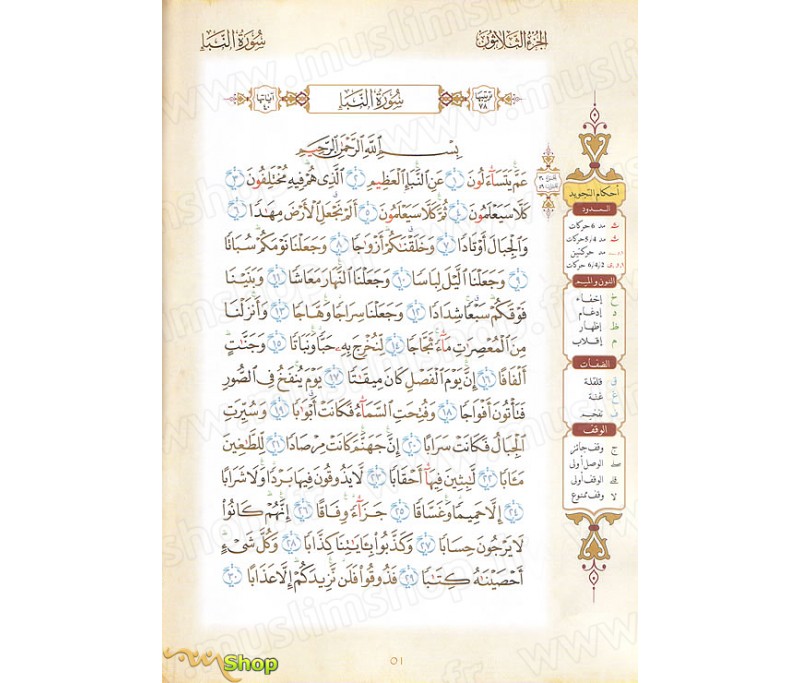 سُورَةُ النَّبَإِ
الجُزْءُ الثَّلَاثُونَ
آيَاتُهَا ٤٠
سُورَةُ النَّبَإِ
تَرْتِيبُهَا ٧٨
بِسْمِ ٱللَّهِ ٱلرَّحْمَٰنِ ٱلرَّحِيمِ
عَمَّ يَتَسَآءَلُونَ ١ عَنِ ٱلنَّبَإِ ٱلْعَظِيمِ ٢ ٱلَّذِى هُمْ فِيهِ مُخْتَلِفُونَ ٣
كَلَّا سَيَعْلَمُونَ ٤ ثُمَّ كَلَّا سَيَعْلَمُونَ ٥ أَلَمْ نَجْعَلِ ٱلْأَرْضَ مِهَٰدًا ٦
وَٱلْجِبَالَ أَوْتَادًا ٧ وَخَلَقْنَٰكُمْ أَزْوَٰجًا ٨ وَجَعَلْنَا نَوْمَكُمْ سُبَاتًا
٩ وَجَعَلْنَا ٱلَّيْلَ لِبَاسًا ١٠ وَجَعَلْنَا ٱلنَّهَارَ مَعَاشًا ١١ وَبَنَيْنَا
فَوْقَكُمْ سَبْعًا شِدَادًا ١٢ وَجَعَلْنَا سِرَاجًا وَهَّاجًا ١٣ وَأَنزَلْنَا
مِنَ ٱلْمُعْصِرَٰتِ مَآءً ثَجَّاجًا ١٤ لِّنُخْرِجَ بِهِۦ حَبًّا وَنَبَاتًا ١٥ وَجَنَّٰتٍ
أَلْفَافًا ١٦ إِنَّ يَوْمَ ٱلْفَصْلِ كَانَ مِيقَٰتًا ١٧ يَوْمَ يُنفَخُ فِى ٱلصُّورِ
فَتَأْتُونَ أَفْوَاجًا ١٨ وَفُتِحَتِ ٱلسَّمَآءُ فَكَانَتْ أَبْوَٰبًا ١٩ وَسُيِّرَتِ
ٱلْجِبَالُ فَكَانَتْ سَرَابًا ٢٠ إِنَّ جَهَنَّمَ كَانَتْ مِرْصَادًا ٢١ لِّلطَّٰغِينَ
مَـَٔابًا ٢٢ لَّٰبِثِينَ فِيهَآ أَحْقَابًا ٢٣ لَّا يَذُوقُونَ فِيهَا بَرْدًا وَلَا شَرَابًا
٢٤ إِلَّا حَمِيمًا وَغَسَّاقًا ٢٥ جَزَآءً وِفَاقًا ٢٦ إِنَّهُمْ كَانُوا۟
لَا يَرْجُونَ حِسَابًا ٢٧ وَكَذَّبُوا۟ بِـَٔايَٰتِنَا كِذَّابًا ٢٨ وَكُلَّ شَىْءٍ
أَحْصَيْنَٰهُ كِتَٰبًا ٢٩ فَذُوقُوا۟ فَلَن نَّزِيدَكُمْ إِلَّا عَذَابًا ٣٠
أحكام التجويد
المدود
مد 6 حركات
مد 5/4 حركات
مد حركتين
6/4/2 حركات
النون والميم
خ إخفاء
د إدغام
ظ إظهار
م إقلاب
الصفات
قلقلة
غنة
تفخيم
الوقف
ج وقف جائز
صلـ الوصل أولى
قلـ الوقف أولى
لا وقف ممنوع
٥١
Shop
www.muslimshop.fr